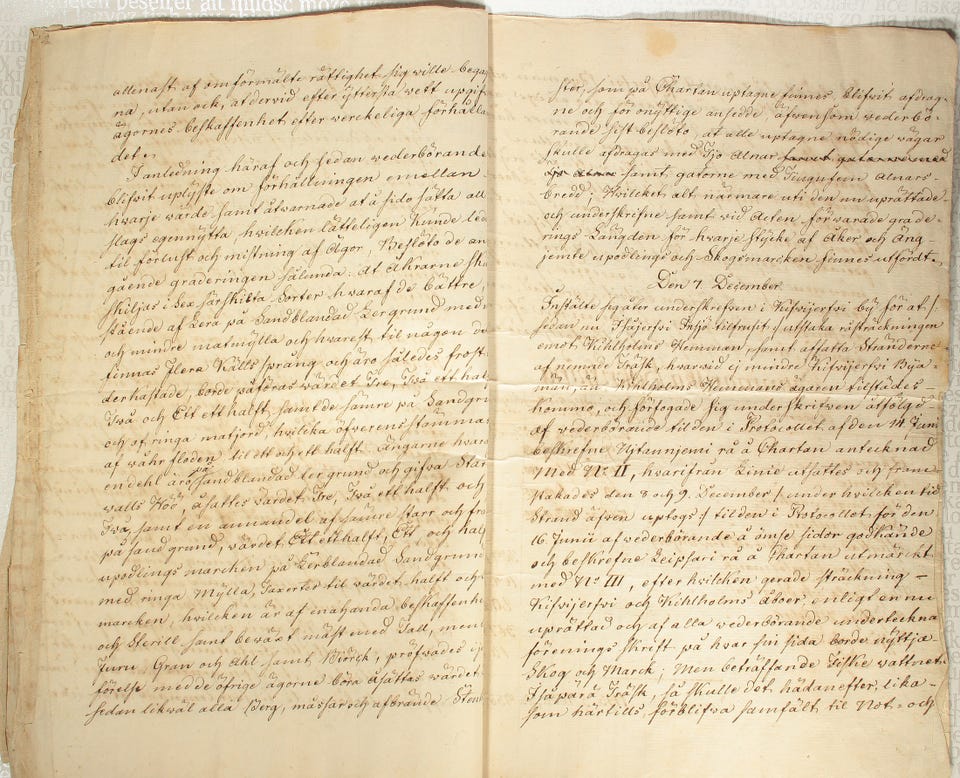 allenast af omförmälte rättighet sig wille bega
na, utan ock, at dervid efter yttersta wett upgif
ägornes beskaffenhet efter werckeliga förhålla
det.
I anledning häraf och sedan wederbörande
blifvit uplyste om förhållningen emellan
hwarje wärde samt åtvarnade at å sido sätta all
slags egennytta, hvilcken lätteligen kunde led
til förlust och mistning af Ägor, Beslöto de an
gående graderingen sålunda. At Åkrarne sku
skiljas i Sex särskilta Sorter hwaraf de bättre,
stående af Lera på Sandblandad Lergrund med
och mindre matmylla och hvarest til någon de
finnas flera Källsprång och äro således frost
derkastade, borde påföras wärdet Tre, Två ett hal
Två och Ett ett halft, samt de sämre på Sandgru
och af ringa matjord, hvilka öfverenstämma
af wåhrfloden til ett och ett halft. Ängarne hvara
en dehl äro på sandblandad lergrund och gifva Star
walls Höö, åsattes värdet Tre, Två ett halft och
Två, samt en annan del af sämre starr och fro
på sand grund, wärdet Ett ett halft, Ett, och hal
upodlings marcken på Lerblandad Sandgrun
med ringa Mylla, Taxertes til värdet halft och
marcken, hvilcken är af enahanda beskaffenhe
och Sterill samt beväxt mäst med Tall, men
Furu, Gran och Ahl samt Biörck, pröfvades i j
förelse med de öfrige ägorne böra åsättas wärdet
sedan likwäl alla Berg, måssar och afbrände Sten
ster, som på Chartan uptagne finnes, blifvit afdrag-
ne och för onyttige ansedde, äfvensom wederbö-
rande sist beslöto, at alle uptagne nödige vägar
skulle afdragas med Tjo Alnar
samt gatorne med Tjugufem Alnars
bredd, Hvilcket alt närmare uti den nu uprättade
och underskrefne samt vid Acten förvarade grade-
rings Längden för hwarje stycke af Åker och Äng
jemte upodlings och Skogsmarcken finnes utfördt.
Den 7 December
Instälte sig åter underskrefven i Kifvijerfvi by för at /:
sedan nu Isäjerfvi Insjö tilfrusit :/ utstaka råsträckningen
emot Kihlholms Hemman, samt affatta Stränderne
af nemnde Träsk, hvarvid ej mindre Kifvijerfvi Bya-
män, än Kihlholms Hemmans ägaren tilstädes-
kommo, och förfogade sig underskrifven åtfölgd
af wederbörande til den i Protocollet af den 14 Juni
beskrefne Nytannjemi rå å Chartan antecknad
med No II, hvarifrån Linie utsattes och fram-
stakades den 8 och 9. December /: under hvilcken tid
Strand äfven uptogs :/ til den i Protocollet för den
16 Junii af wederbörande å ömse sidor godkände
och beskrefne Leipsari rå å Chartan utmärckt
med No III, efter hvilcken gerade sträckning
Kifvijerfvi och Kihlholms åboer enligt en nu
uprättad och af alla wederbörande underteckna
förenings Skrift på hvar sin sida borde nyttja
Skog och Marck; Men beträffande Fiske wattnet
Isäpärä Träsk, så skulle det, hädanefter, lika-
som härtills, förblifva samfält til Not- och